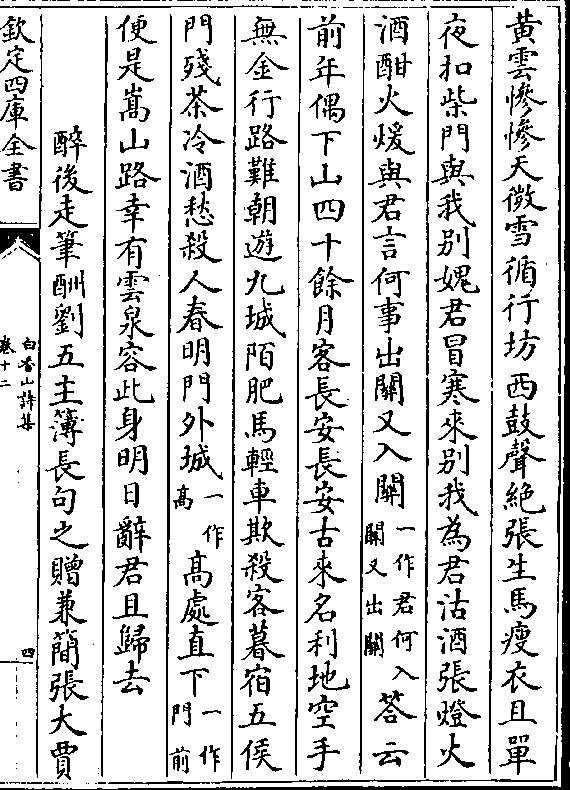 黃雲慘慘天微雪循行坊西鼓聲絶張生馬瘦衣且單
夜扣柴門與我別媿君冒寒來別我為君沽酒張燈火
酒酣火煖與君言何事出關又入關一作君何入關又出關答云
前年偶下山四十餘月客長安長安古來名利地空手
無金行路難朝遊九城陌肥馬輕車欺殺客暮宿五侯
門殘茶冷酒愁殺人春明門外城一作高高處直下一作門前
便是嵩山路幸有雲泉容此身明日辭君且歸去
醉後走筆酬劉五主簿長句之贈兼簡張大賈
欽定四庫全書
白香山詩集
卷十二
四